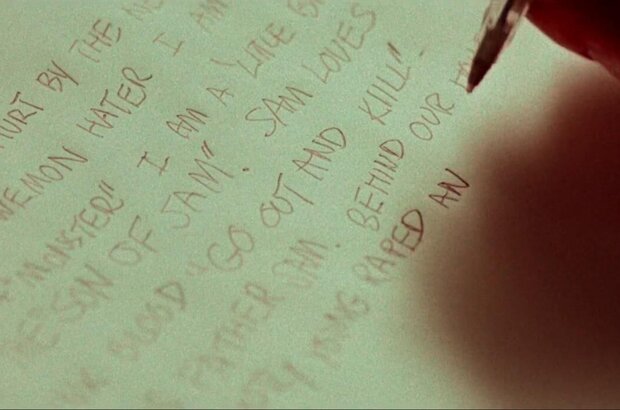 HURT BY THE
WEMON HATER I AM
"MONSTER" I AM A "LITTLE
"SON OF SAM". SAM LOVES
BLOOD "GO OUT AND KILL".
FATHER SAM. BEHIND OUR
RAPED AN